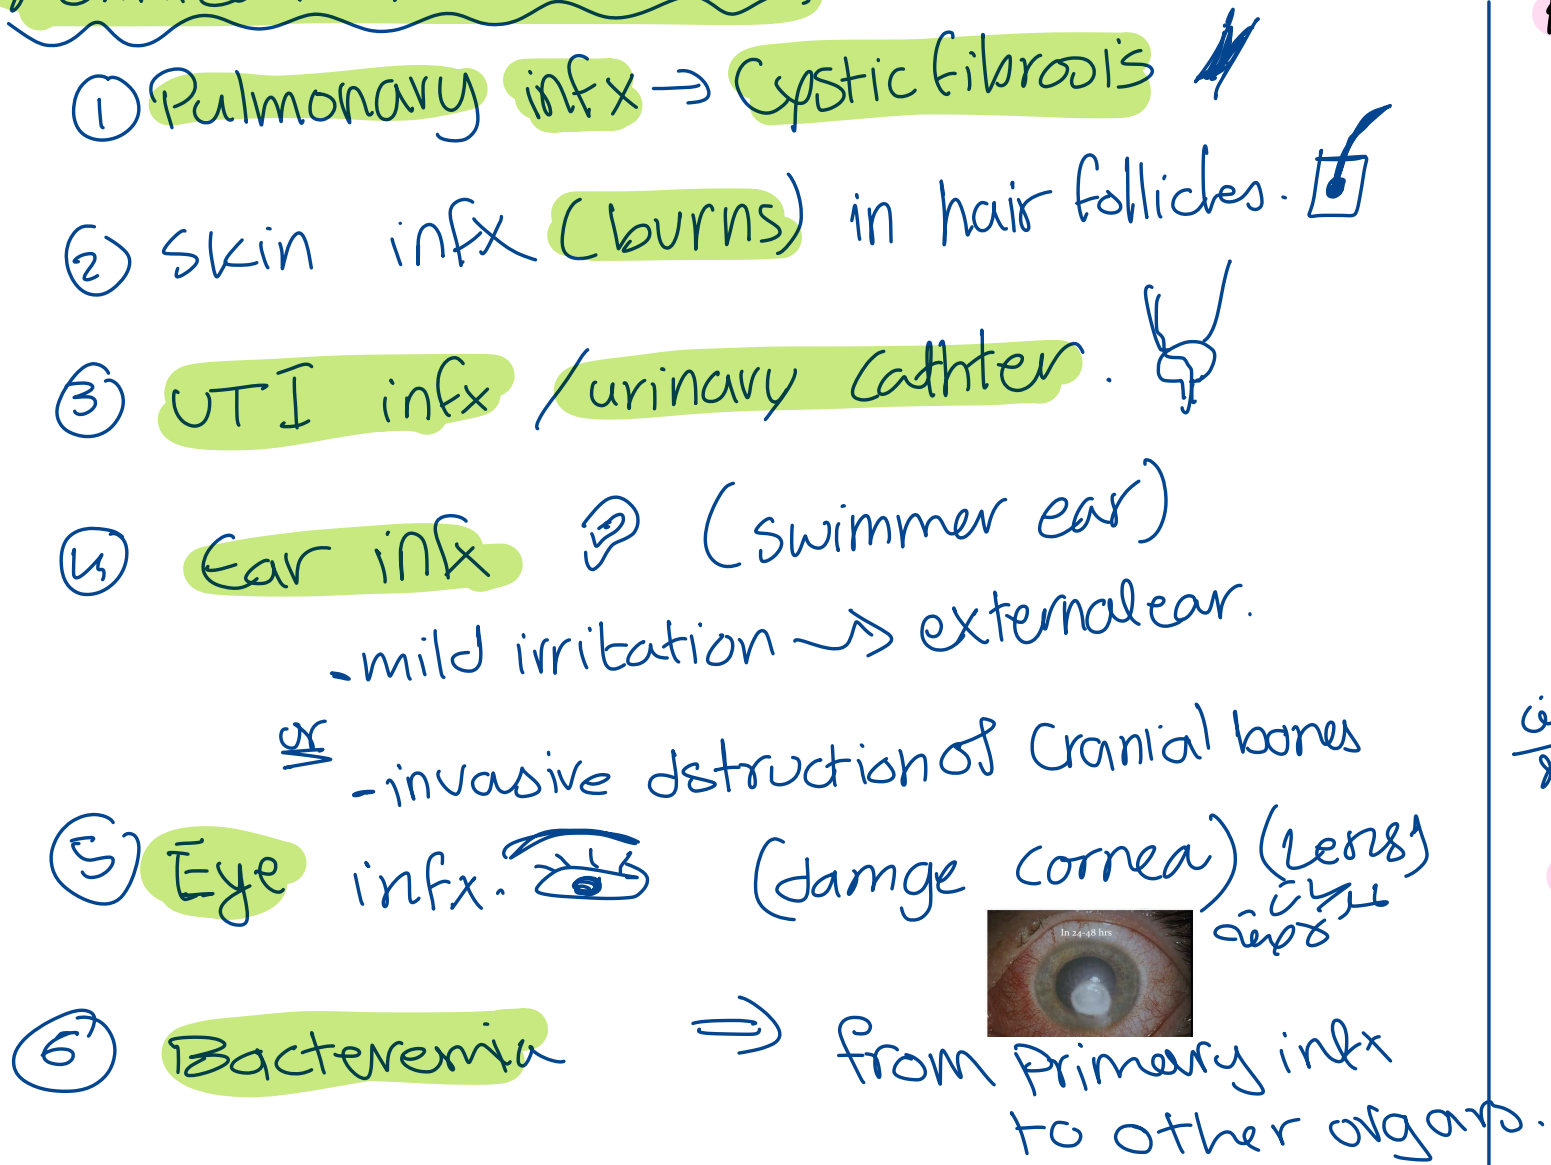 ① Pulmonary infx → Cystic fibrosis
② skin infx (burns) in hair follicles.
③ UTI infx / urinary cathter.
④ Ear infx (swimmer ear)
- mild irritation → external ear.
or
- invasive dstruction of Cranial bones
⑤ Eye infx. (damge cornea) (Lens)
In 24-48 hrs
⑥ Bacteremia ⇒ from primary infx
to other organs.